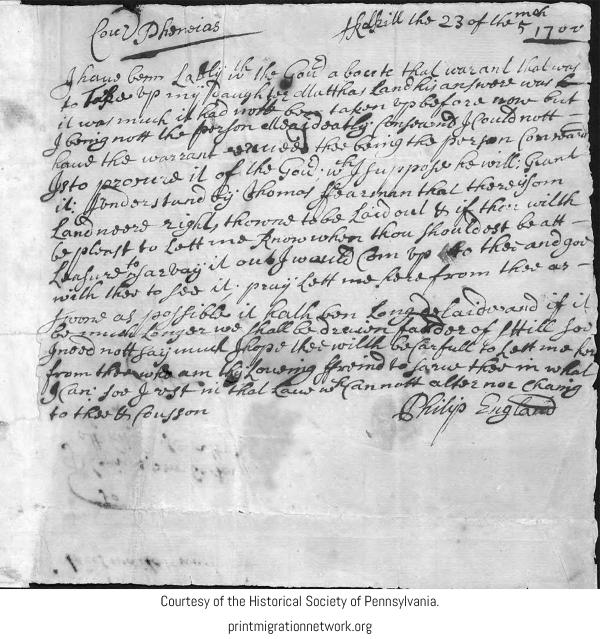 Cous Pheneias Skilkill the 23 of the 5 mth 1702
I have benn Lattly with the Gour aboute that warant that was
to Take up my Daughter Marthas Land his answere was
it was much it had nott ben taken up before now but
I being nott the person Consernd I Could nott
have the warrant thee being the person Consearnd
is to procure it of the Gour: wch I suppose he will: Grant
it: I understand by: Thomas Fearman that there is som
Land neere right thowne to be Laid out & if thou willth
be pleast to Lett me Know when thou shouldest be att
Leasure to Sarvay it out I would Com up to thee and goe
with thee to see it: pray Lett me here from thee as
soone as possible it hath ben Long delaide and if it
be much Longer we shall be driven soe
I need nott say much I hope thee willth be Carfull to Lett me her
from thee who am thy Loveing ffreind to sarve thee in what
I Can: soe I rest in that Love wch Cannott alter nor Chang
to thee & Cousson Philip England
Courtesy of the Historical Society of Pennsylvania.
printmigrationnetwork.org